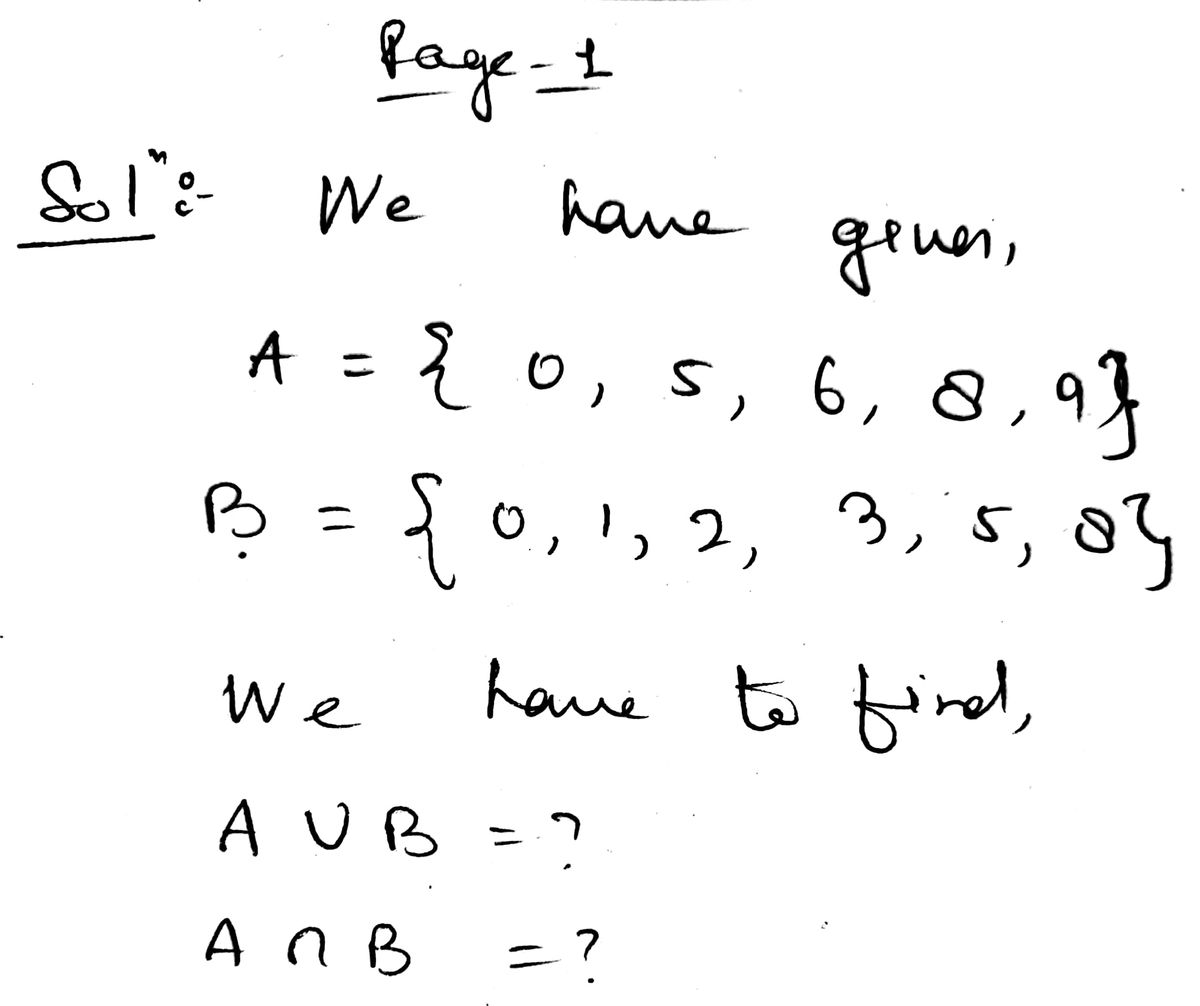 Page-1
Solⁿ:- We have given,
A = { 0, 5, 6, 8, 9}
B = { 0, 1, 2, 3, 5, 8}
We have to find,
A ∪ B = ?
A ∩ B = ?